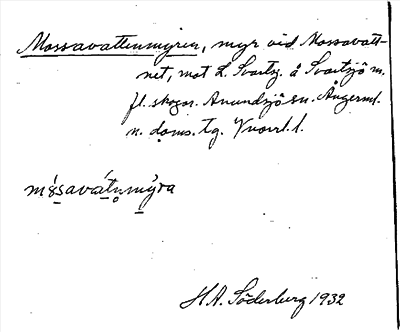 Mossavattenmyren, myr vid Mossavatt-
net, mot L. Svartsj. å Svartsjö m.
fl. skogar. Anundsjö sn. Ångerml.
n. doms. tg. Vnorrl. l.
mɷsavátnmỳra
H.A. Söderberg 1932